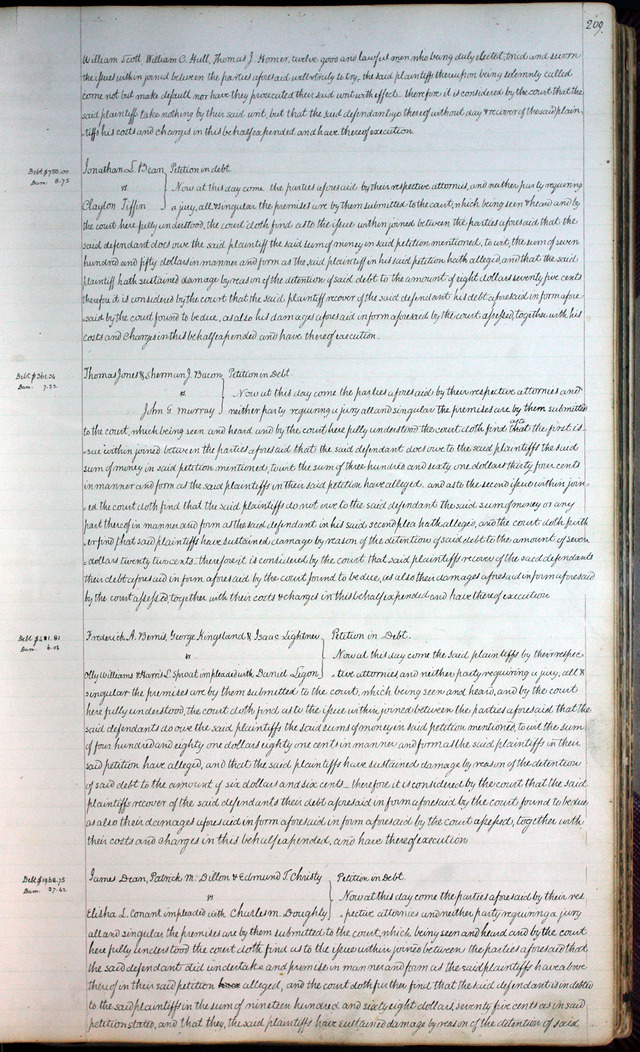 209
William Scott, William C. Gull, Thomas J. Gomer, twelve good and lawful men who being duly elected, tried and sworn
the issues within joined between the parties aforesaid well & truly to try, the said plaintiffs thereupon being solemnly called
come not but make default nor have they prosecuted their said writ with effect. therefore it is considered by the court that the
said plaintiffs take nothing by their said writ, but that the said defendant go thereof without day & recover of the said plain-
-tiffs his costs and charges in this behalf expended and have thereof execution
Debt $750.00
Dam 8.75
Jonathan L. Bean Petition in debt
vs Now at this day come the parties aforesaid by their respective attornies, and neither party requiring
Clayton Tiffin a jury, all & singular the premises are by them submitted to the court; which being seen & heard and by
the court here fully understood, the court doth find as to the issue within joined between the parties aforesaid that the
said defendant does owe the said plaintiff the said sum of money in said petition mentioned, to wit, the sum of seven
hundred and fifty dollars in manner and form as the said plaintiff in his said petition hath alleged, and that the said
plaintiff hath sustained damage by reason of the detention of said debt to the amount of eight dollars seventy five cents
therefore it is considered by the court that the said plaintiff recover of the said defendant his debt aforesaid in form afore
-said by the court found to be due, as also his damages aforesaid in form aforesaid by the court assessed, together with his
costs and charges in this behalf expended and have thereof execution.
Debt $361.34
Dam 7.22
Thomas Jones & Sherman J. Bacon Petition in Debt
vs Now at this day come the parties aforesaid by their respective attornies and
John G Murray neither party requiring a jury all and singular the premises are by them submitted
to the court, which being seen and heard and by the court here fully understood the court doth find as to that the first is-
-sue within joined between the parties aforesaid that the said defendant does owe to the said plaintiffs the said
sum of money in said petition mentioned, to wit the sum of three hundred and sixty one dollars thirty four cents
in manner and form as the said plaintiffs in their said petition have alleged. and as to the second issue within join-
-ed the court doth find that the said plaintiffs do not owe to the said defendant the said sum of money or any
part thereof in manner and form as the said defendant in his said second plea hath alleged, and the court doth furth
-er find that said plaintiffs have sustained damage by reason of the detention of said debt to the amount of seven
-dollars twenty two cents - therefore it is considered by the court that said plaintiffs recover of the said defendants
their debt aforesaid in form aforesaid by the court found to be due, as also their damages aforesaid in form aforesaid
by the court assessed, together with their costs & charges in this behalf expended and have thereof execution
Debt $481.81
Dam 6.06
Frederick A. Bemis, George Kingsland & Isaac Lightner Petition in Debt.
vs Now at this day come the said plaintiffs by their respec-
Olly Williams & Harris L. Sproat impleaded with Daniel Ligon -tive attornies and neither party requiring a jury, all &
singular the premises are by them submitted to the court, which being seen and heard, and by the court
here fully understood, the court doth find as to the issue within joined between the parties aforesaid that the
said defendants do owe the said plaintiffs the said sums of money in said petition mentioned, to wit the sum
of four hundred and eighty one dollars eighty one cents in manner and form as the said plaintiffs in their
said petition have alleged, and that the said plaintiffs have sustained damage by reason of the detention
of said debt to the amount of six dollars and six cents - therefore it is considered by the court that the said
plaintiffs recover of the said defendants their debt aforesaid in form aforesaid by the court found to be due
as also their damages aforesaid in form aforesaid in form aforesaid by the court assessed, together with
their costs and charges in this behalf expended, and have thereof execution
Debt $1968.75
Dam 37.42
James Dean, Patrick M. Dillon & Edmund T. Christy Petition in Debt.
vs Now at this day come the parties aforesaid by their res
Elisha L. Conant impleaded with Charles M. Doughty -pective attornies and neither party requiring a jury
all and singular the premises are by them submitted to the court, which being seen and heard, and by the court
here fully understood the court doth find as to the issue within joined between the parties aforesaid that
the said defendant did undertake and promise in manner and form as the said plaintiffs have above
thereof in their said petition alleged, and the court doth further find that the said defendant is indebted
to the said plaintiffs in the sum of nineteen hundred and sixty eight dollars, seventy five cents as in said
petition stated, and that they, the said plaintiffs have sustained damage by reason of the detention of said